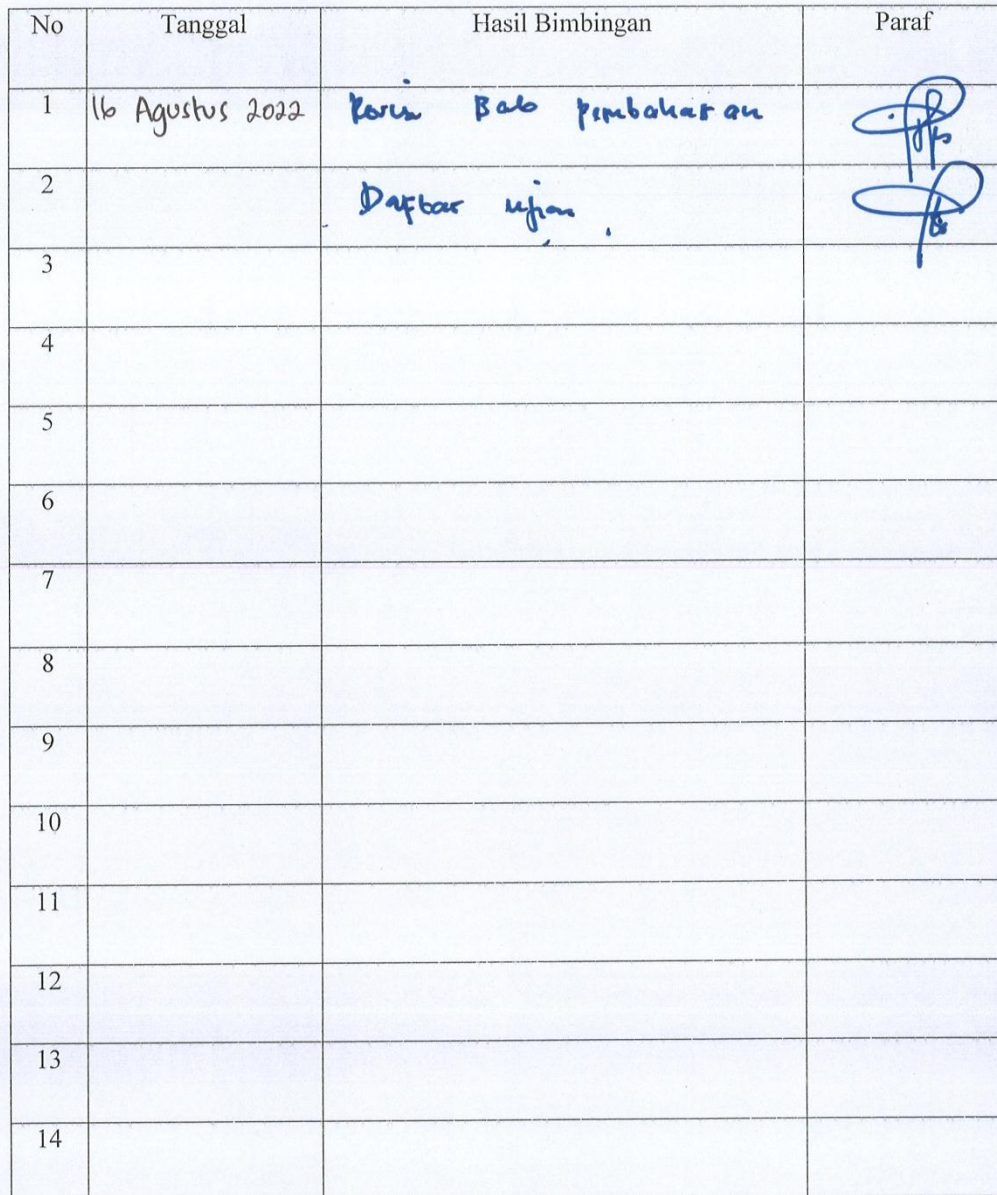 No Tanggal Hasil Bimbingan Paraf
1 16 Agustus 2022 Revisi Bab Pembahasan
2 Daftar ujian
3
4
5
6
7
8
9
10
11
12
13
14